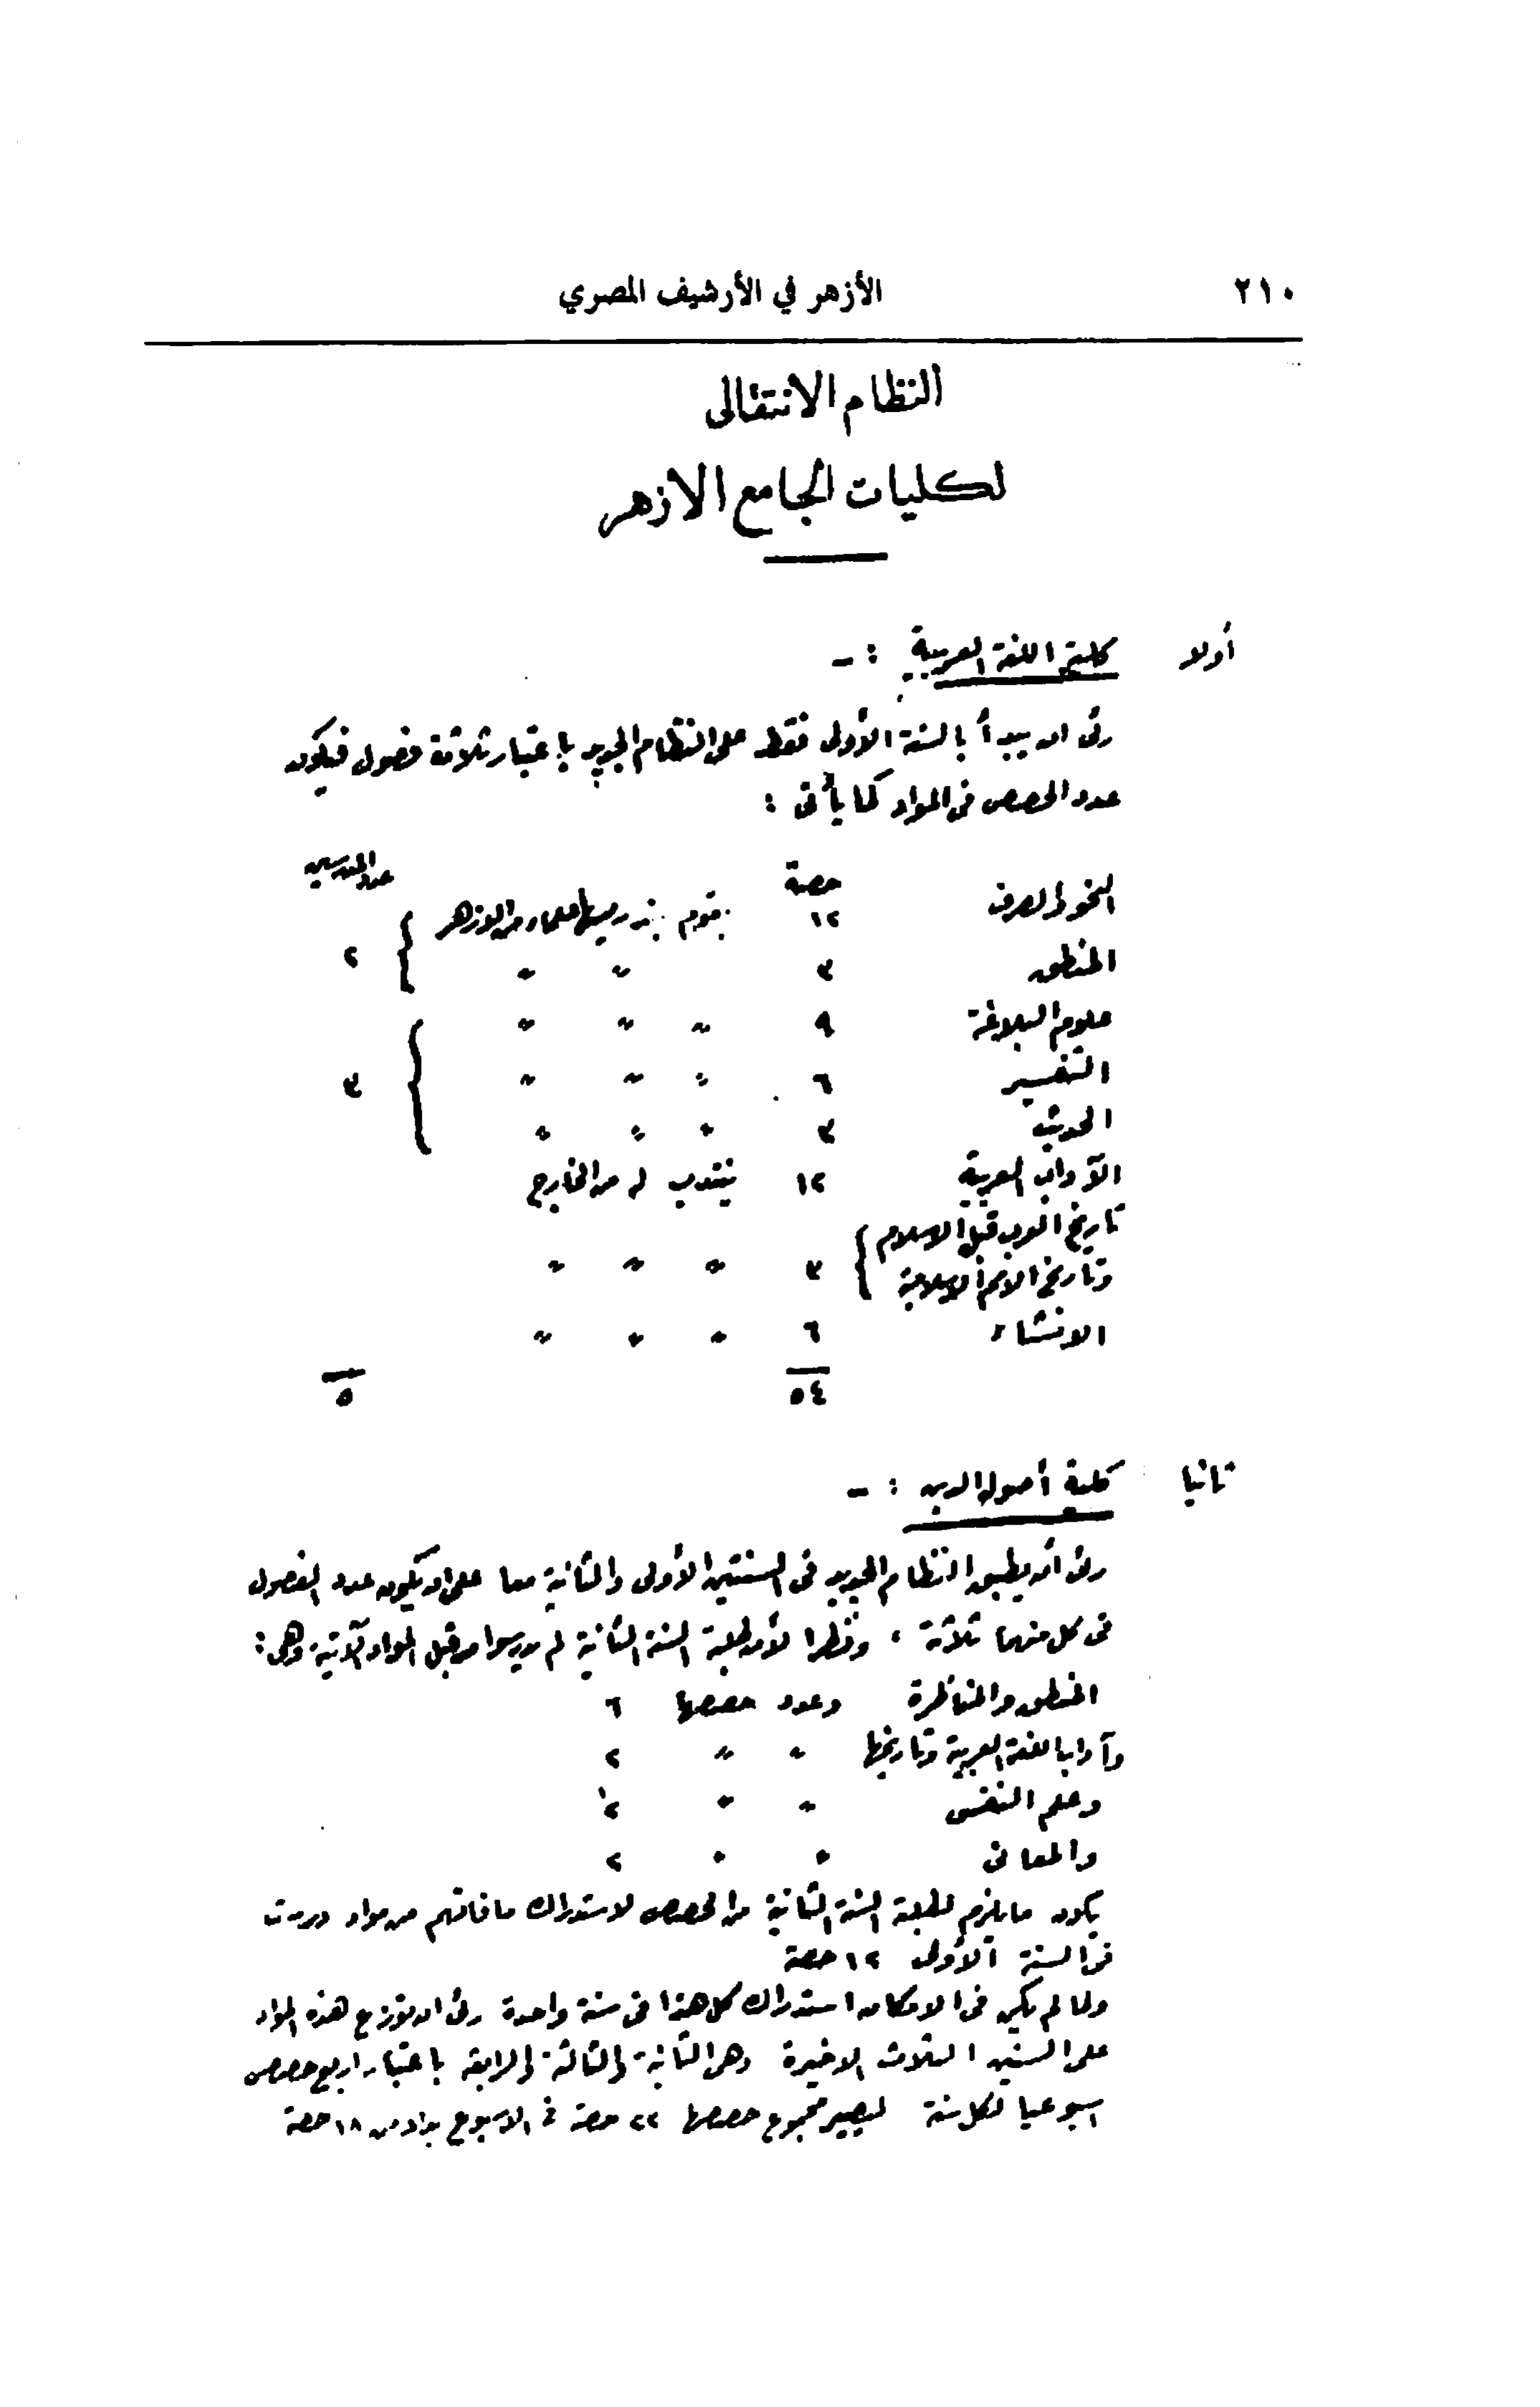 ٢١٠ الأزهر في الأرشيف المصري
النظام الانتقالى
لكليات الجامع الازهر
أولا كلية اللغة العربية : -
رئى ان يبدأ بالسنة الأولى فقط على النظام الجديد باعتبار ثلاثة فصول فيكون
عدد الحصص فى المواد كما يأتى :
حصة عدد المدرسين
النحو والصرف ١٢ يقوم بتدريسها علماء من الازهر
المنطق ٣ " " } ٢
علوم البلاغة ٩ " " "
التفسير ٦ " " " } ٣
الحديث ٣ " " "
الآداب العربية ١٢ ينتدب له من الخارج
تاريخ العرب قبل الاسلام
وتاريخ الامم الاسلامية } ٣ " " "
الانشاء ٦ " " "
٥٤ ٥
ثانيا كلية أصول الدين : -
رئى أن يطبق النظام الجديد فى السنتين الأولى والثانية معا على ان يكون عدد الفصول
فى كل منهما ثلاثة ، ونظرا لأن طلبة السنة الثانية لم يدرسوا من قبل المواد الآتية وهى :
المنطق والمناظرة وعدد حصصها ٦
وآداب اللغة العربية وتاريخها " " ٢
وعلم النفس " " ٢
والمعانى " " ٢
يكون ما يلزم لطلبة السنة الثانية من الحصص لاستدراك ما فاتهم من مواد درست
فى السنة الأولى ١٢ حصة
ولما لم يكن فى الامكان استدراك كل هذا فى سنة واحدة رئى ان توزع هذه المواد
على السنين الثلاث الاخيرة وهى الثانية والثالثة والرابعة باعتبار اربع حصص
اسبوعيا لكل سنة ليصير مجموع حصصها ٢٢ حصة فى الاسبوع بدلا من ١٨ حصة